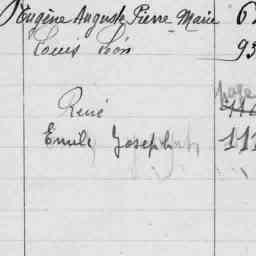 Eugène Auguste Pierre Marie 6
Louis Léon 93
page
René 116
Emile Joseph 111